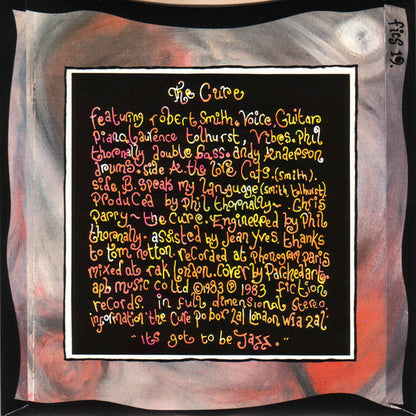 fics 19.
The Cure
featuring robert Smith. Voice. Guitar
piano. Laurence tolhurst, Vibes. Phil
thornally double bass. andy Anderson
drums. side A. the love Cats. (smith).
side B. speak my language (smith tolhurst)
Produced by Phil thornally~. Chris
Parry~the Cure. Engineered by Phil
thornally. assisted by Jean Yves. thanks
to tom notton. recorded at phonogram paris
mixed at rak london. Cover by Parched art.
apb music co ltd ©1983 ℗ 1983 fiction
records. in full dimensional stereo
information: the Cure po box 2al london w1a 2al
"its got to be Jazz."